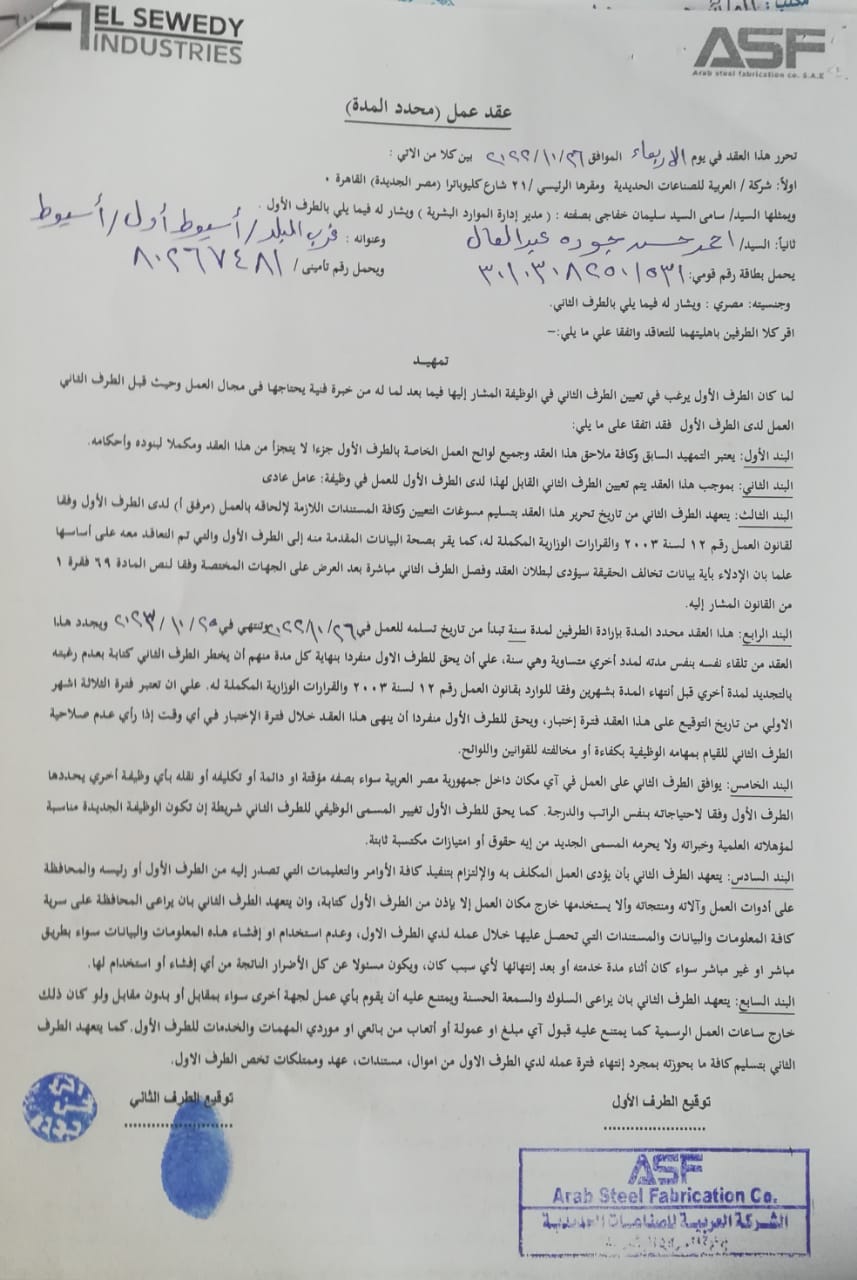 EL SEWEDY
INDUSTRIES
ASF
Arab steel fabrication co. S.A.E
عقد عمل (محدد المدة)
تحرر هذا العقد في يوم الاربعاء الموافق ٢٠٢٢/١٠/٢٦ بين كلا من الاتي :
اولاً: شركة / العربية للصناعات الحديدية ومقرها الرئيسي /٢١ شارع كليوباترا (مصر الجديدة) القاهرة ٠
ويمثلها السيد/ سامى السيد سليمان خفاجى بصفته : ( مدير إدارة الموارد البشرية ) ويشار له فيما يلي بالطرف الأول .
ثانياً: السيد/ احمد حسن جوده عبدالعال وعنوانه : غرب البلد / أسيوط أول / أسيوط
يحمل بطاقة رقم قومي: ٣٠١٠٣٠٨٢٥٠١٥٣١ ويحمل رقم تأمينى / ٨٠٢٦٧٤٨١
وجنسيته: مصري : ويشار له فيما يلي بالطرف الثاني.
اقر كلا الطرفين باهليتهما للتعاقد واتفقا علي ما يلي:–
تمهيد
لما كان الطرف الأول يرغب في تعيين الطرف الثاني في الوظيفة المشار إليها فيما بعد لما له من خبرة فنية يحتاجها فى مجال العمل وحيث قبل الطرف الثاني
العمل لدى الطرف الأول فقد اتفقا على ما يلي:
البند الأول: يعتبر التمهيد السابق وكافة ملاحق هذا العقد وجميع لوائح العمل الخاصة بالطرف الأول جزءا لا يتجزأ من هذا العقد ومكملا لبنوده وأحكامه.
البند الثاني: بموجب هذا العقد يتم تعيين الطرف الثاني القابل لهذا لدى الطرف الأول للعمل في وظيفة: عامل عادى
البند الثالث: يتعهد الطرف الثاني من تاريخ تحرير هذا العقد بتسليم مسوغات التعيين وكافة المستندات اللازمة لإلحاقه بالعمل (مرفق أ) لدى الطرف الأول وفقا
لقانون العمل رقم ١٢ لسنة ٢٠٠٣ والقرارات الوزارية المكملة له، كما يقر بصحة البيانات المقدمة منه إلى الطرف الأول والتي تم التعاقد معه على أساسها
علما بان الإدلاء بأية بيانات تخالف الحقيقة سيؤدى لبطلان العقد وفصل الطرف الثاني مباشرة بعد العرض على الجهات المختصة وفقا لنص المادة ٦٩ فقرة ١
من القانون المشار إليه.
البند الرابع: هذا العقد محدد المدة بإرادة الطرفين لمدة سنة تبدأ من تاريخ تسلمه للعمل في ٢٠٢٢/١٠/٢٦ وتنتهي في ٢٠٢٣/١٠/٢٥ ويجدد هذا
العقد من تلقاء نفسه بنفس مدته لمدد أخري متساوية وهي سنة، علي أن يحق للطرف الاول منفردا بنهاية كل مدة منهم أن يخطر الطرف الثاني كتابة بعدم رغبته
بالتجديد لمدة أخري قبل أنتهاء المدة بشهرين وفقا للوارد بقانون العمل رقم ١٢ لسنة ٢٠٠٣ والقرارات الوزارية المكملة له. علي ان تعتبر فترة الثلاثة اشهر
الاولي من تاريخ التوقيع على هذا العقد فترة إختبار، ويحق للطرف الأول منفردا أن ينهى هذا العقد خلال فترة الإختبار في أي وقت إذا رأي عدم صلاحية
الطرف الثاني للقيام بمهامه الوظيفية بكفاءة أو مخالفته للقوانين واللوائح.
البند الخامس: يوافق الطرف الثاني على العمل في آي مكان داخل جمهورية مصر العربية سواء بصفه مؤقتة او دائمة أو تكليفه أو نقله بأي وظيفة أخري يحددها
الطرف الأول وفقا لاحتياجاته بنفس الراتب والدرجة. كما يحق للطرف الأول تغيير المسمى الوظيفي للطرف الثاني شريطة إن تكون الوظيفة الجديدة مناسبة
لمؤهلاته العلمية وخبراته ولا يحرمه المسمى الجديد من إيه حقوق أو امتيازات مكتسبة ثابتة.
البند السادس: يتعهد الطرف الثاني بأن يؤدى العمل المكلف به والإلتزام بتنفيذ كافة الأوامر والتعليمات التي تصدر إليه من الطرف الأول أو رئيسه والمحافظة
على أدوات العمل وآلاته ومنتجاته وألا يستخدمها خارج مكان العمل إلا بإذن من الطرف الأول كتابة، وان يتعهد الطرف الثاني بان يراعى المحافظة على سرية
كافة المعلومات والبيانات والمستندات التي تحصل عليها خلال عمله لدي الطرف الاول، وعدم استخدام او إفشاء هذه المعلومات والبيانات سواء بطريق
مباشر او غير مباشر سواء كان أثناء مدة خدمته أو بعد إنتهائها لأي سبب كان، ويكون مسئولا عن كل الأضرار الناتجة من أي إفشاء أو استخدام لها.
البند السابع: يتعهد الطرف الثاني بان يراعى السلوك والسمعة الحسنة ويمتنع عليه أن يقوم بأي عمل لجهة أخرى سواء بمقابل أو بدون مقابل ولو كان ذلك
خارج ساعات العمل الرسمية كما يمتنع عليه قبول آي مبلغ او عمولة أو أتعاب من بائعي او موردي المهمات والخدمات للطرف الأول. كما يتعهد الطرف
الثاني بتسليم كافة ما بحوزته بمجرد إنتهاء فترة عمله لدي الطرف الاول من اموال، مستندات، عهد وممتلكات تخص الطرف الاول.
توقيع الطرف الأول
توقيع الطرف الثاني
ASF
Arab Steel Fabrication Co.
الشركة العربية للصناعات الحديدية